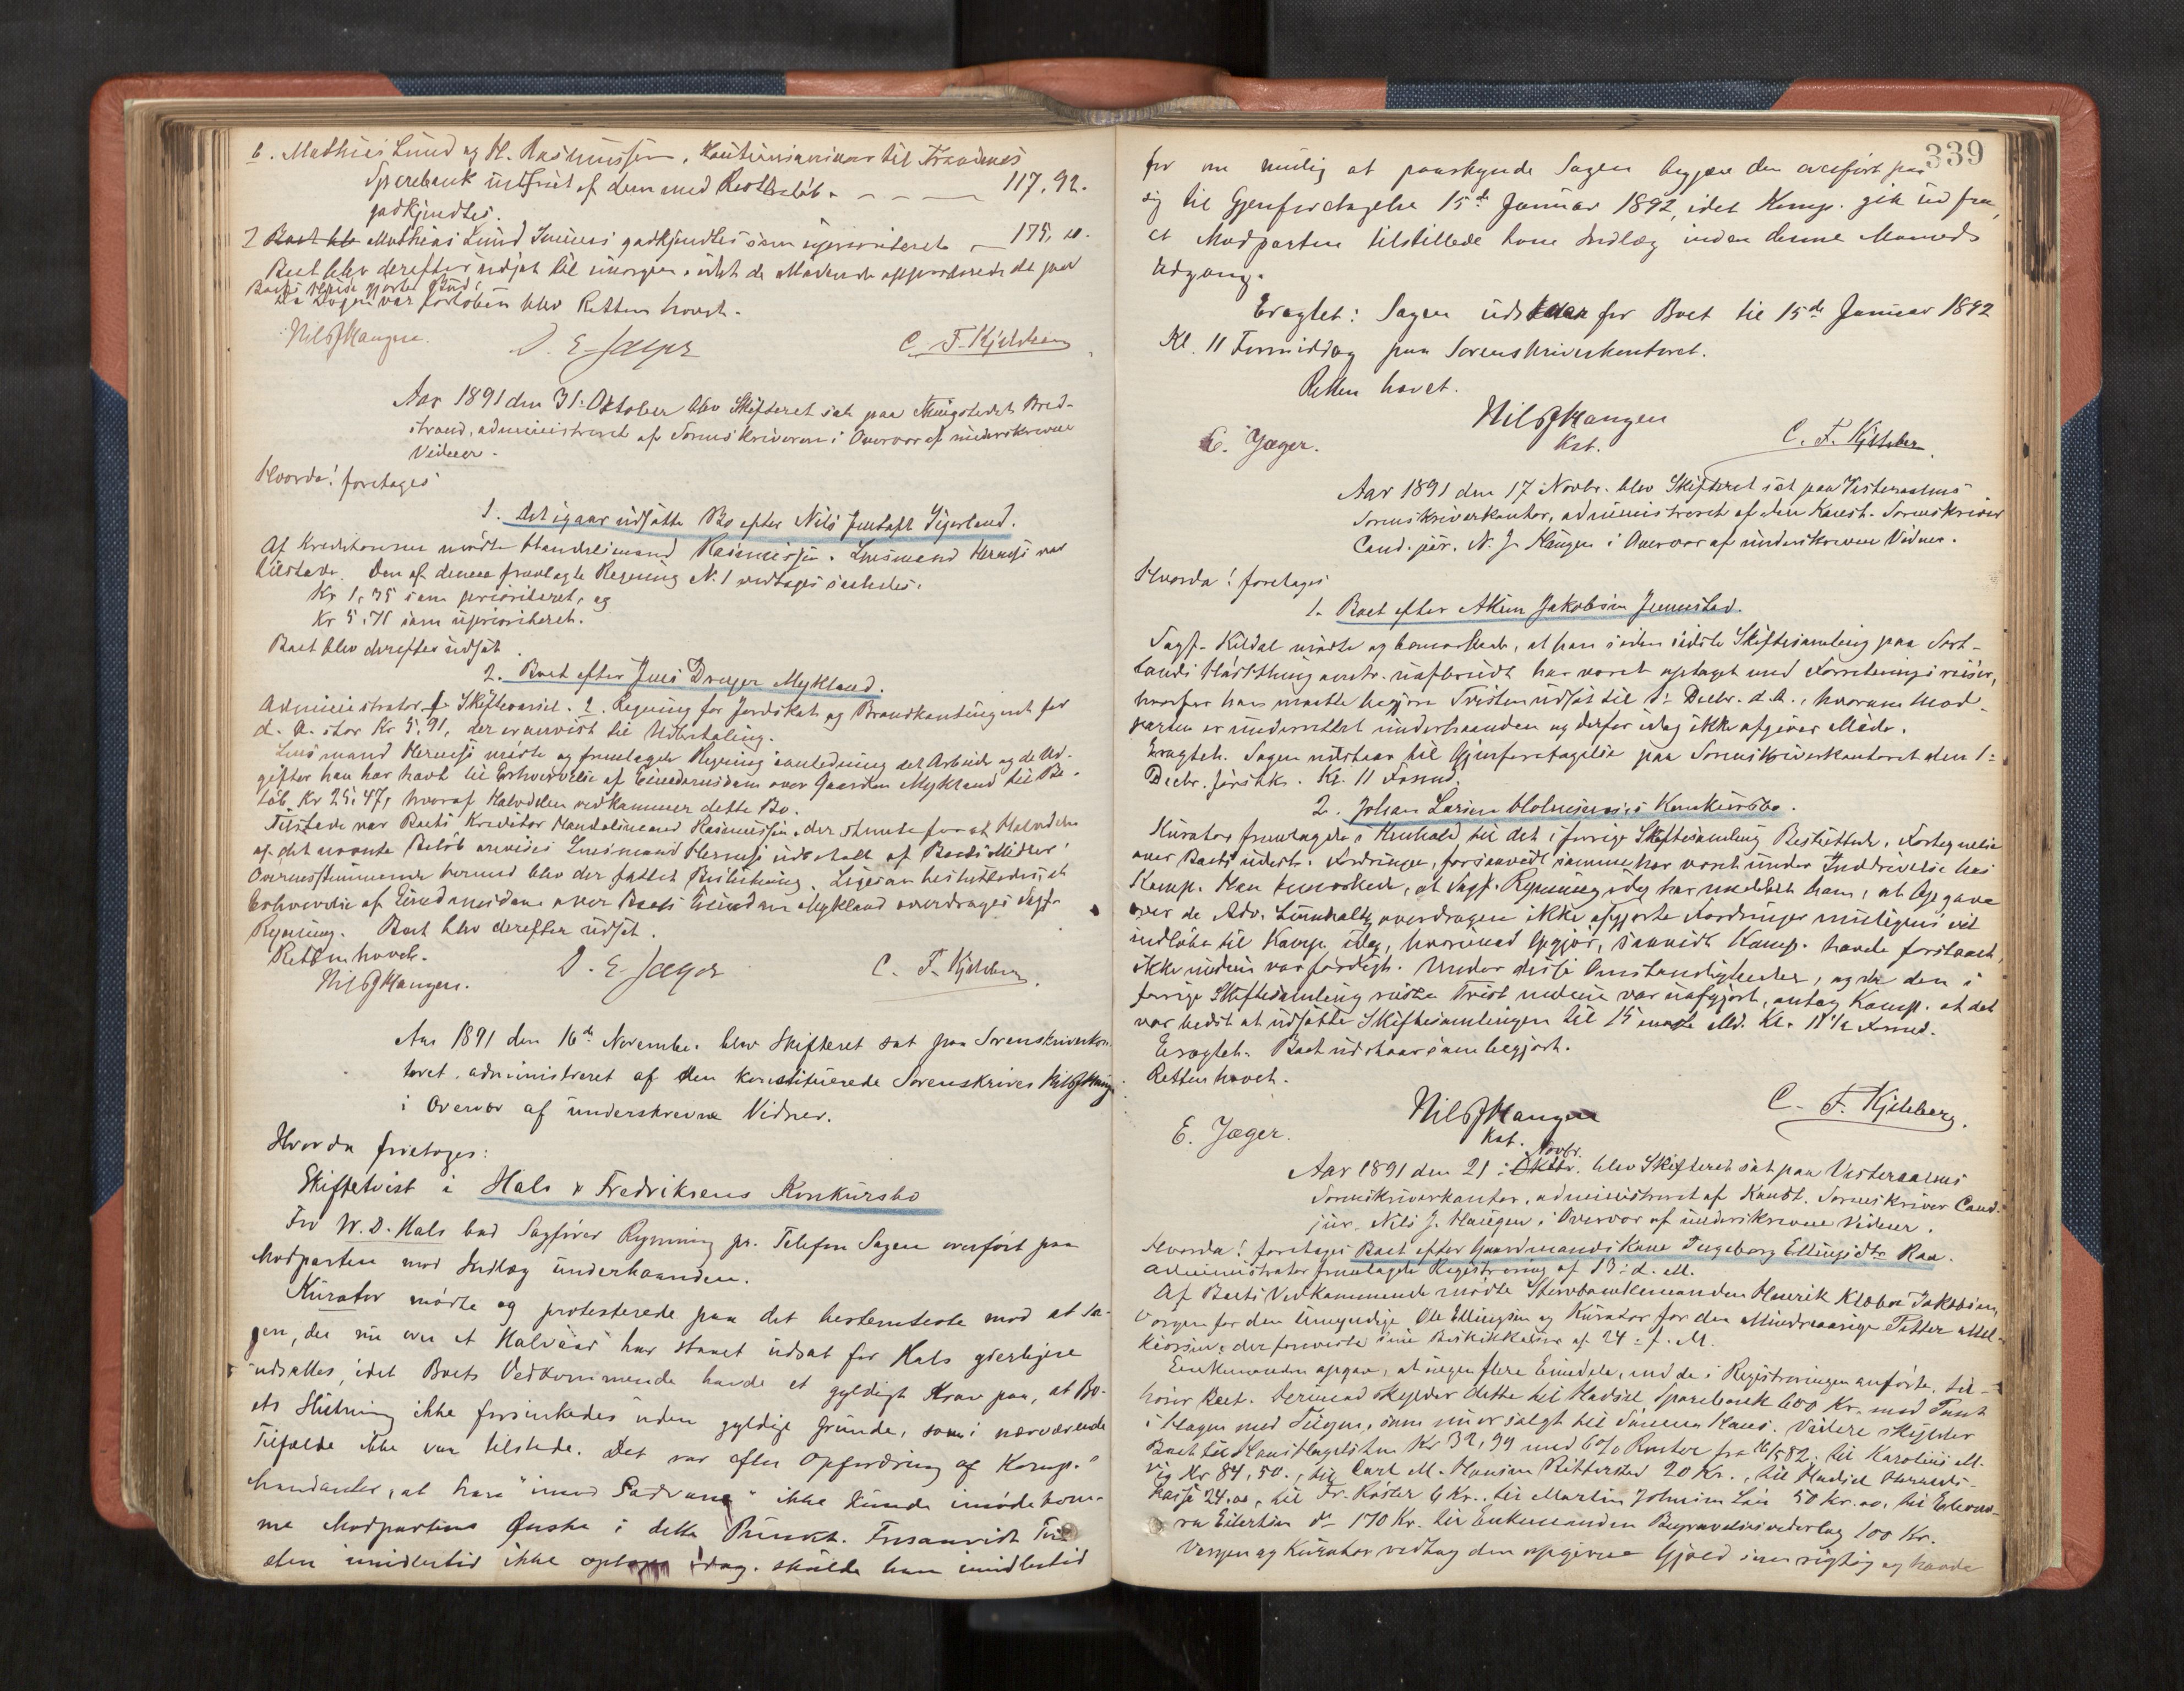 6. Mathies Lund og H. Rasmussen, Kautionister til Trondenes
Sparebank indfriet af dem med Restbeløb - - - - 117,92.
godkjendtes.
7 Mathias Lund godkjendtes som uprioriteret - 175,10.
Boet blev derefter udsat til imorgen, idet de Mødende approberede det paa
Boets gjorte Bud.
Da Dagen var forløben blev Retten hævet.
Nils J Haugen. D. E. Jæger C. F. Kjelsberg
Aar 1891 den 31. Oktober blev Skifteret sat paa Thingstedet Bred-
strand, administreret af Sorenskriveren i Overvær af underskrevne
Vidner.
Hvorda! foretages
1. Det igaar udsatte Bo efter Nils Jentoft Sigerland.
Af Kreditorerne mødte Handelsmand Rasmussen. Lensmand Hernes var
tilstede. Den af denne fremlagte Regning N. 1 vedtages saaledes:
Kr 1,35 som prioriteret, og
Kr 5,71 som uprioriteret.
Boet blev derefter udsat.
2. Boet efter Jens Dreyer Mykland.
Administrator f. Skiftevæsnet. 2. Regning for Jordskat og Brandkontingent for
d. A. stor Kr 5,91, der er anvist til Udbetaling.
Lensmand Hernes mødte og fremlagde Regning i anledning det Arbeide og de Ud-
gifter han har havt til Erhvervelse af Eiendomsdom over Gaarden Mykland til Be-
løb Kr 25,47, hvoraf Halvdelen vedkommer dette Bo.
Tilstede var Boets Kreditor Handelsmand Rasmussen, der stemte for at Halvdelen
af det nævnte Beløb anvises Lensmand Hernes udbetalt af Boets Midler.
Overensstemmende hermed blev der fattet Beslutning. Ligesaa besluttedes, at
Erhvervelse af Eiendomsdom over Boets Eiendom Mykland overdrages Sagf.
Rynning. Boet blev derefter udsat.
Retten hævet.
Nils J Haugen. D. E. Jæger C. F. Kjelsberg.
Aar 1891 den 16de November blev Skifteret sat paa Sorenskriverkon-
toret, administreret af den konstituerede Sorenskriver Nils J Haugen
i Overvær af underskrevne Vidner.
Hvorda foretages:
Skiftetvist i Hals & Fredriksens Konkursbo
For W. D. Hals bad Sagfører Rynning pr. Telefon Sagen overført paa
Modparten mod Indlæg underhaanden.
Kurator mødte og protesterede paa det bestemteste mod at Sa-
gen, der nu over et Halvaar har staaet udsat for Hals yderligere
udsattes, idet Boets Vedkommende havde et gyldigt Krav paa, at Bo-
ets Slutning ikke forsinkedes uden gyldige Grunde, som i nærværende
Tilfælde ikke var tilstede. Det var efter Opfordring af Komp.s
Mandanter, at han "imod Sædvane" ikke kunde imødekom-
me Modpartens Ønske i dette Punkt. Forsaavidt Tvi-
sten imidlertid ikke optoges idag, skulde han imidlertid
339
for om mulig at paaskynde Sagen begjære den overført paa
sig til Gjenforetagelse 15de Januar 1892, idet Komp. gik ud fra,
at Modparten tilstillede ham Indlæg inden denne Maaneds
Udgang.
Eragtet: Sagen udstaar for Boet til 15de Januar 1892
Kl. 11 Formiddag paa Sorenskriverkontoret.
Retten hævet.
E. Jæger. Nils J Haugen C. F. Kjelsberg.
Kst.
Aar 1891 den 17 Novbr. blev Skifteret sat paa Vesteraalens
Sorenskriverkontor, administreret af den Konst. Sorenskriver
Cand. jur. N. J. Haugen i Overvær af underskrevne Vidner.
Hvorda! foretages
1. Boet efter Akim Jakobsen Jennestad.
Sagf. Kildal mødte og bemærkede, at han siden sidste Skiftesamling paa Sort-
lands Høstthing uafbrudt har været optaget med Forretningsreiser,
hvorfor han maatte begjære Tvisten udsat til 1: Decbr. d. A., hvorom Mod-
parten er underrettet underhaanden og derfor idag ikke afgiver Møde.
Eragtet. Sagen udstaar til Gjenforetagelse paa Sorenskriverkontoret den 1:
Decbr. førstk. Kl. 11 Formd.
2. Johan Larsen Holmsnes's Konkursbo.
Kurator fremlagde i Henhold til det i forrige Skiftesamling Besluttede, Fortegnelse
over Boets udest. Fordringer, forsaavidt samme har været under Inddrivelse hos
Komp. Han bemærkede, at Sagf. Rynning idag har meddelt ham, at Opgave
over de Adv. overdragne ikke opgjorte Fordringer muligens vil
indløbe til Komp. idag, hvorimod Opgjør, saavidt Komp. havde forstaaet,
ikke endnu var færdigt. Under disse Omstændigheder, og da den i
forrige Skiftesamling reiste Tvist endnu var uafgjort, antog Komp. at det
var bedst at udsætte Skiftesamlingen til 15 næste Md. Kl. 11 1/2 Formd.
Eragtet. Boet udstaar som begjært.
Retten hævet.
E. Jæger. Nils J Haugen C. F. Kjelsberg.
Kst.
Novbr.
Aar 1891 den 21: Oktbr. blev Skifteret sat paa Vesteraalens
Sorenskriverkontor, administreret af Konst. Sorenskriver Cand.
jur. Nils J. Haugen i Overvær af underskrevne Vidner.
Hvorda! foretages Boet efter Gaardmandskone Ingeborg Ellingsdtr Raa.
Administrator fremlagde Registrering af 13: d. M.
Af Boets Vedkommende mødte Stervboenkemanden Henrik Jakobsen,
Værgen for den Umyndige Ole Ellingsen og Kurator for den Mindreaarige Petter Mel-
kiorsen, der foreviste sine Beskikkelser af 24: f. M.
Enkemanden opgav, at ingen flere Eiendele, end de i Registreringen anførte, til-
hører Boet. Derimod skylder dette til Hadsel Sparebank 600 Kr. med Pant
i Hagen med Tugen, som nu er solgt til Sønnen Hans. Videre skylder
Boet til Hans Hagelsten Kr 32,99 med 6% Renter fra 16/5 82, til Karolius M.
Vig Kr 84,50., til Carl M. Hansen Rittersted 20 Kr., til Hadsel Herreds-
kasse 24,00, til Fr. Køster 6 Kr., til Martin Johnsen Lia 50 Kr. oo, til
Eilertsen do 170 Kr. til Enkemanden Begravelsesvederlag 100 Kr.
Værgen og Kurator vedtog den opgivne Gjæld som rigtig og havde